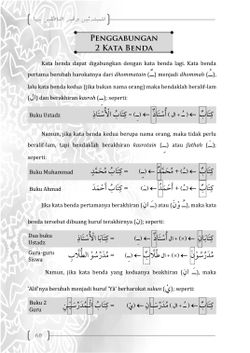 PENGGABUNGAN
2 KATA BENDA
Kata benda dapat digabungkan dengan kata benda lagi. Kata benda
pertama berubah harakatnya dari dhommatain (ـٌ) menjadi dhommah (ـُ),
lalu kata benda kedua (jika bukan nama orang) maka hendaklah beralif-lam
(ال) dan berakhiran kasroh (ـِ); seperti:
Buku Ustadz كِتَابٌ ← (ـُ) + (ال) أُسْتَاذٌ ← (ـِ) = كِتَابُ الْأُسْتَاذِ
Namun, jika kata benda kedua berupa nama orang, maka tidak perlu
beralif-lam, tapi hendaklah berakhiran kasrotain (ـٍ) atau fathah (ـَ);
seperti:
Buku Muhammad كِتَابٌ ← (ـُ) + مُحَمَّدٌ ← (ـٍ) = كِتَابُ مُحَمَّدٍ
Buku Ahmad كِتَابٌ ← (ـُ) + أَحْمَدُ ← (ـَ) = كِتَابُ أَحْمَدَ
Jika kata benda pertamanya berakhiran (انِ) atau (ـُوْنَ), maka kata
benda tersebut dibuang huruf terakhirnya (نَ); seperti:
Dua buku
Ustadz
Guru-guru
Siswa مُدَرِّسُوْ الطُّلَّابِ
Namun, jika kata benda yang keduanya berakhiran (انِ), maka
'Alif'nya berubah menjadi huruf 'Ya'' berharakat sukun (يْ); seperti:
Buku 2
Guru
68